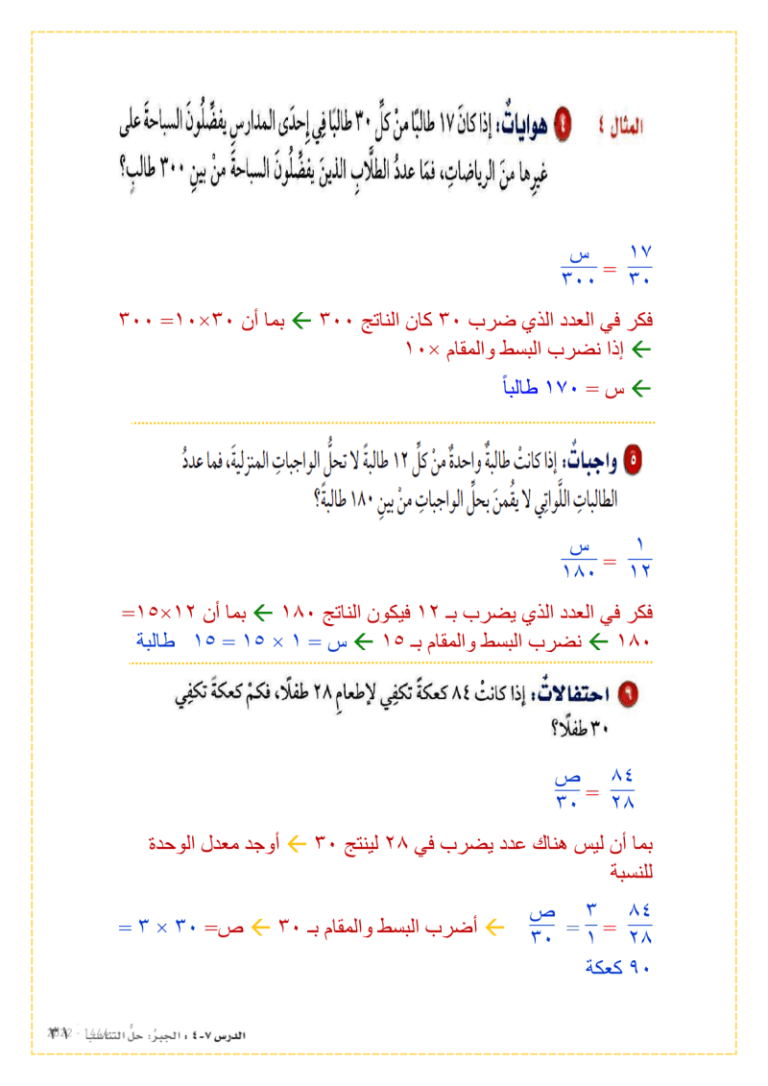 المثال ٤ ٤ هواياتٌ: إذا كانَ ١٧ طالبًا منْ كلِّ ٣٠ طالبًا فِي إحدَى المدارسِ يفضِّلُونَ السباحةَ على
غيرِها منَ الرياضاتِ، فمَا عددُ الطلَّابِ الذينَ يفضِّلُونَ السباحةَ منْ بينِ ٣٠٠ طالبٍ؟
١٧/٣٠ = س/٣٠٠
فكر في العدد الذي ضرب ٣٠ كان الناتج ٣٠٠ ← بما أن ٣٠×١٠= ٣٠٠
← إذا نضرب البسط والمقام ×١٠
← س = ١٧٠ طالباً
٥ واجباتٌ: إذا كانتْ طالبةٌ واحدةٌ منْ كلِّ ١٢ طالبةً لا تحلُّ الواجباتِ المنزليةَ، فما عددُ
الطالباتِ اللَّواتِي لا يقُمنَ بحلِّ الواجباتِ منْ بينِ ١٨٠ طالبةً؟
١/١٢ = س/١٨٠
فكر في العدد الذي يضرب بـ ١٢ فيكون الناتج ١٨٠ ← بما أن ١٢×١٥=
١٨٠ ← نضرب البسط والمقام بـ ١٥ ← س = ١ × ١٥ = ١٥ طالبة
٦ احتفالاتٌ: إذا كانتْ ٨٤ كعكةً تكفِي لإطعامِ ٢٨ طفلًا، فكمْ كعكةً تكفِي
٣٠ طفلًا؟
٨٤/٢٨ = ص/٣٠
بما أن ليس هناك عدد يضرب في ٢٨ لينتج ٣٠ ← أوجد معدل الوحدة
للنسبة
٨٤/٢٨ = ٣/١ = ص/٣٠ ← أضرب البسط والمقام بـ ٣٠ ← ص= ٣٠ × ٣ =
٩٠ كعكة
الدرس ٧-٤ : الجبرُ: حلُّ التناسب ٣١